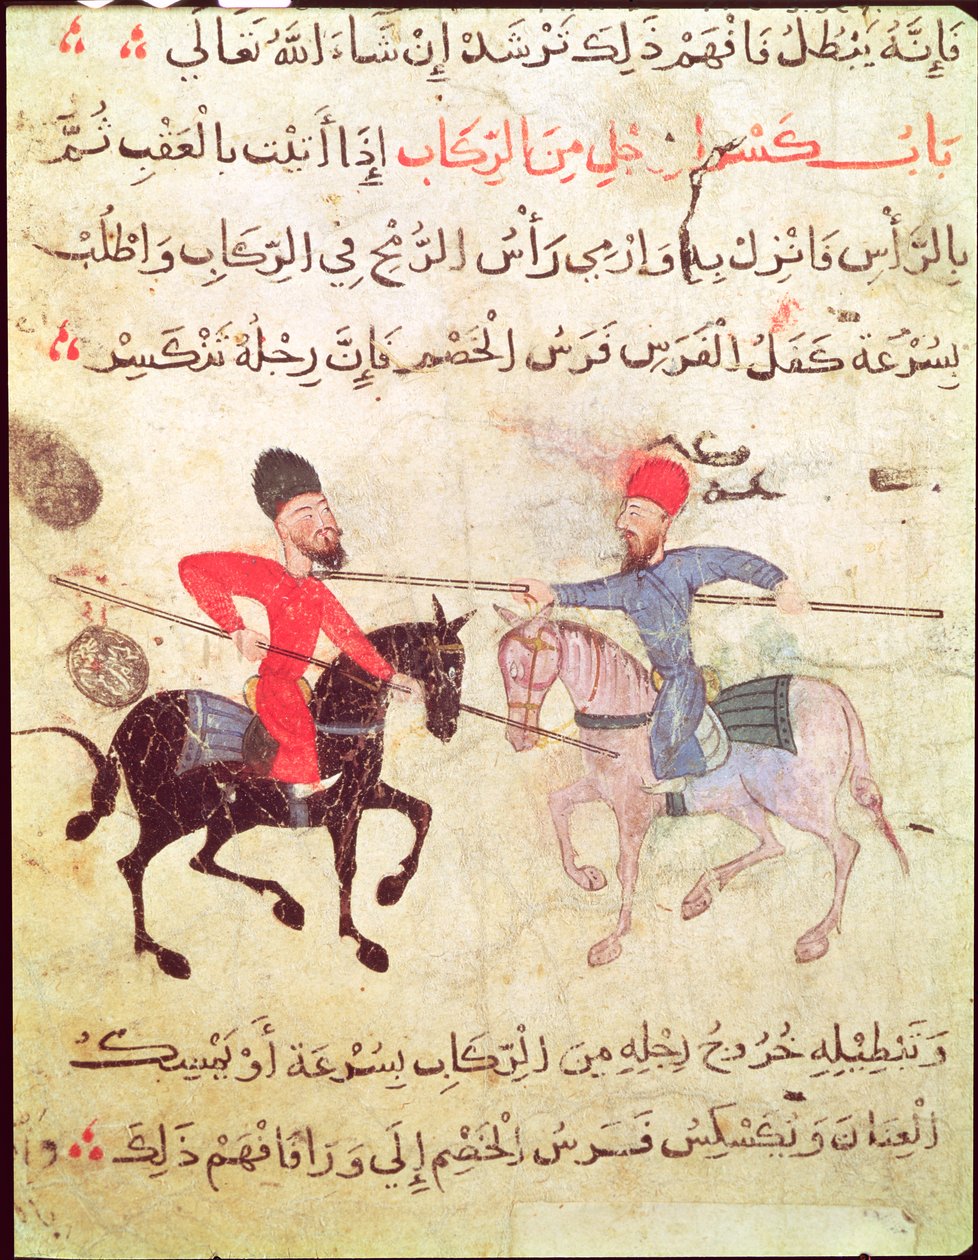 فَإِنَّهُ يَبْطُلُ فَافْهَمْ ذَلِكَ تَرْشَدْ إِنْ شَاءَ اللَّهُ تَعَالَى
بَابُ كَسْرِ الرِّجْلِ مِنَ الرِّكَابِ إِذَا أَتَيْتَ بِالْعَقْبِ ثُمَّ
بِالرَّأْسِ فَانْزِلْ بِهِ وَارْمِي رَأْسُ الرُّمْحِ فِي الرِّكَابِ وَاطْلُبْ
بِسُرْعَةٍ كَفَلُ الْفَرَسِ فَرَسُ الْخَصْمِ فَإِنَّ رِجْلَهُ تَنْكَسِرْ
وَتَبْطِيْلِهِ خُرُوجُ رِجْلِهِ مِنَ الرِّكَابِ بِسُرْعَةٍ أَوْ يَمْسِكُ
الْعِنَانَ وَيُكَسْكِسُ فَرَسُ الْخَصْمِ إِلَى وَرَا فَافْهَمْ ذَلِكَ